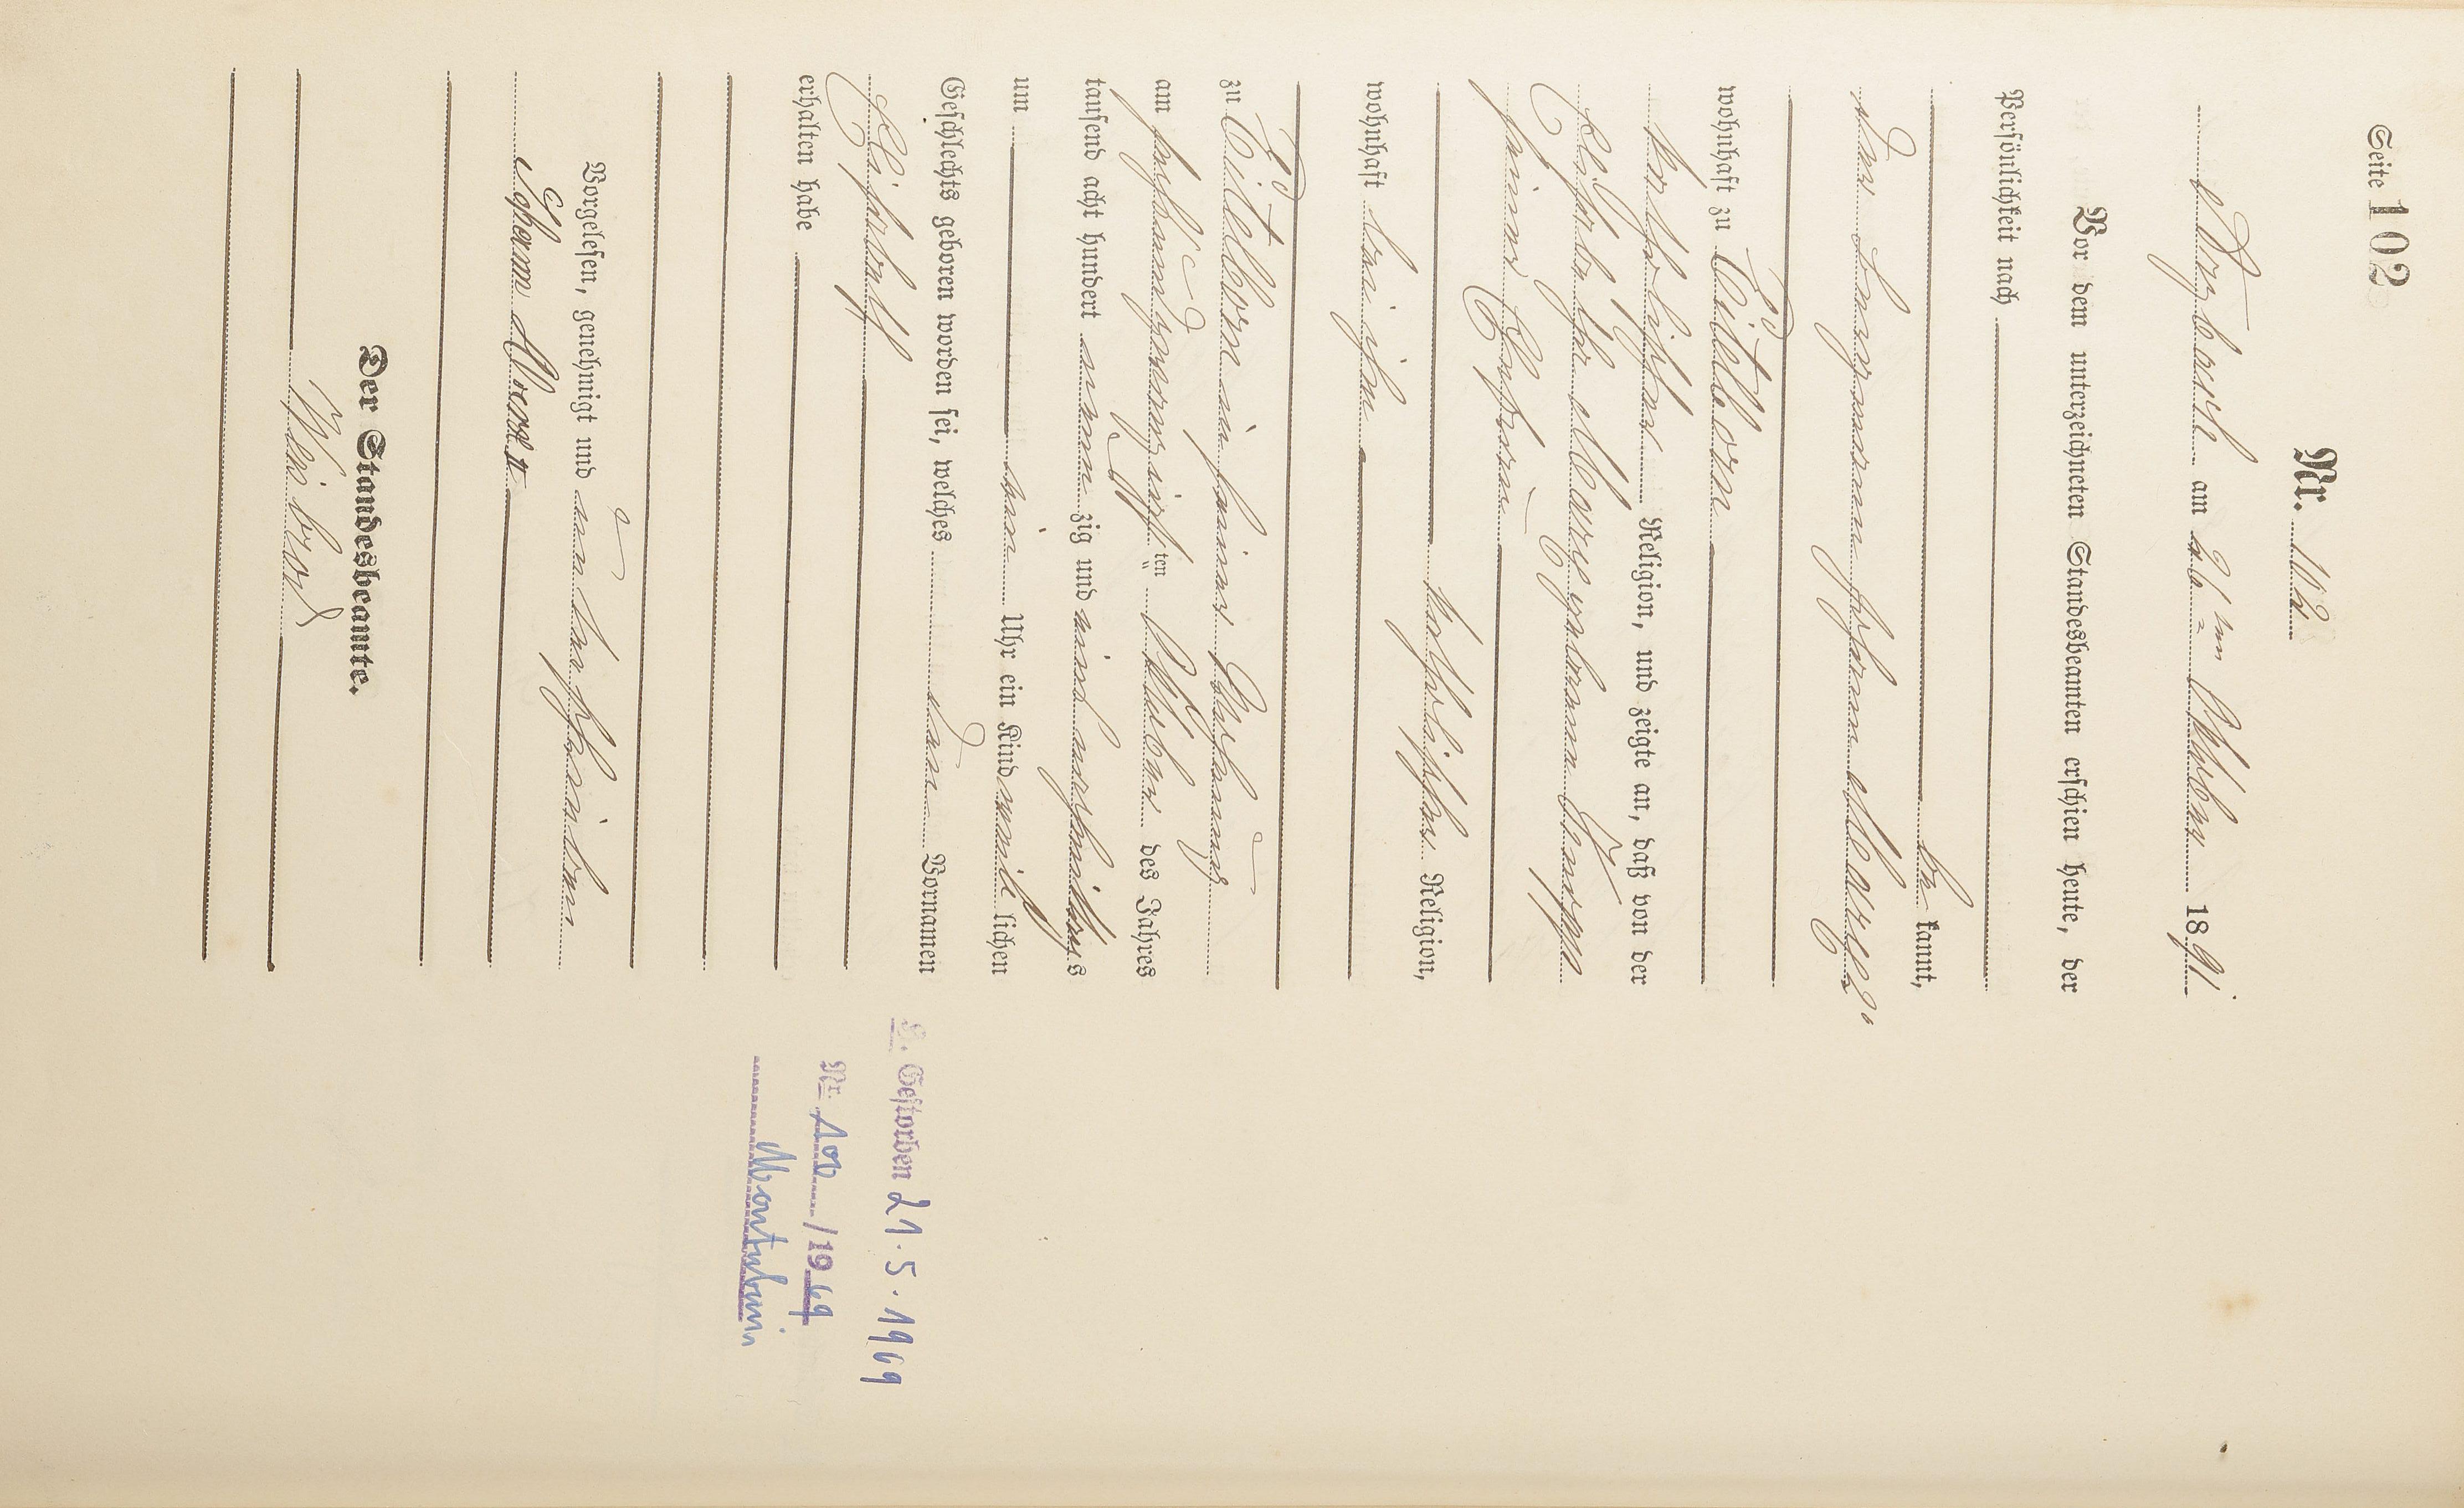 Seite 102
Nr. 102
Arzbach am 26ten Oktober 1891.
Vor dem unterzeichneten Standesbeamten erschien heute, der
Persönlichkeit nach
be kannt,
der Bergmann Johann Marx
wohnhaft zu Eitelborn
katholischer Religion, und zeigte an, daß von der
Marx geborenen Knopp
seiner Ehefrau
katholischer Religion,
wohnhaft bei ihm
zu Eitelborn in seiner Wohnung
am sechsundzwanzigsten ten Oktober des Jahres
tausend acht hundert neun zig und eins nachmittags
um ein Uhr ein Kind weib lichen
Geschlechts geboren worden sei, welches den Vornamen
Elisabeth
erhalten habe
Vorgelesen, genehmigt und unterschrieben
Johann Marx II
Der Standesbeamte.
Gestorben 21.5.1969
Nr. /1969
Montabaur